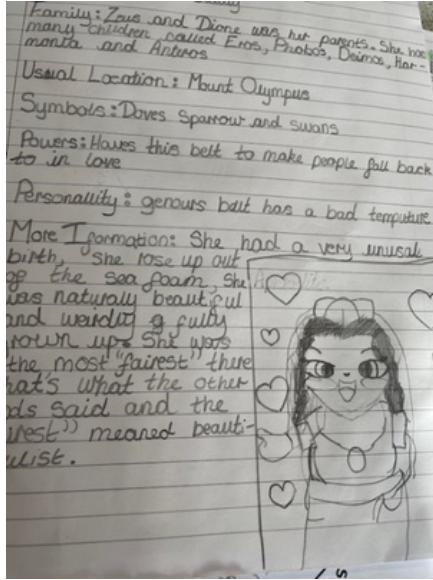 Family: Zeus and Dione was her parents. She has
many children called Eros, Phobos, Deimos, Har-
monta and Anteros
Usual Location: Mount Olympus
Symbols: Doves Sparrow and swans
Powers: Haves this belt to make people fall back
to in love
Personallity: genours but has a bad temputure
More Iformation: She had a very unusal
birth, she rose up out
of the sea foam, She
was naturally beautiful
and weirdly g fully
rown up. She was
the most "fairest" there
hat's what the other
ds said and the
irest" meaned beauti-
ulist.